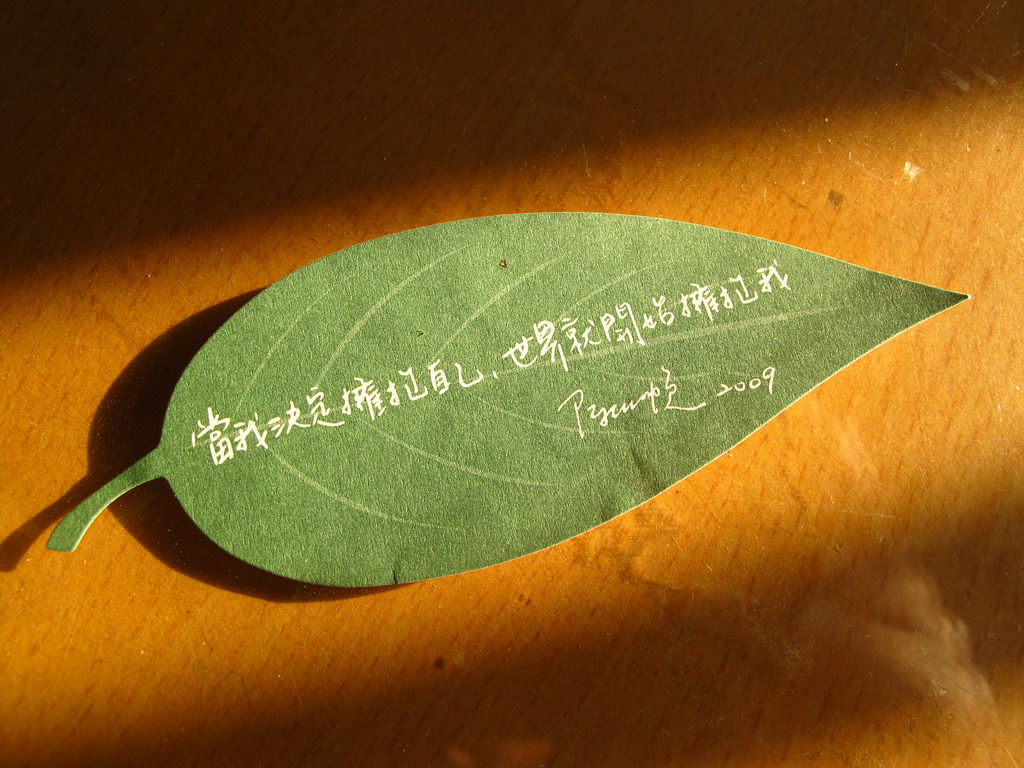 當我決定擁抱自己、世界就開始擁抱我
2009